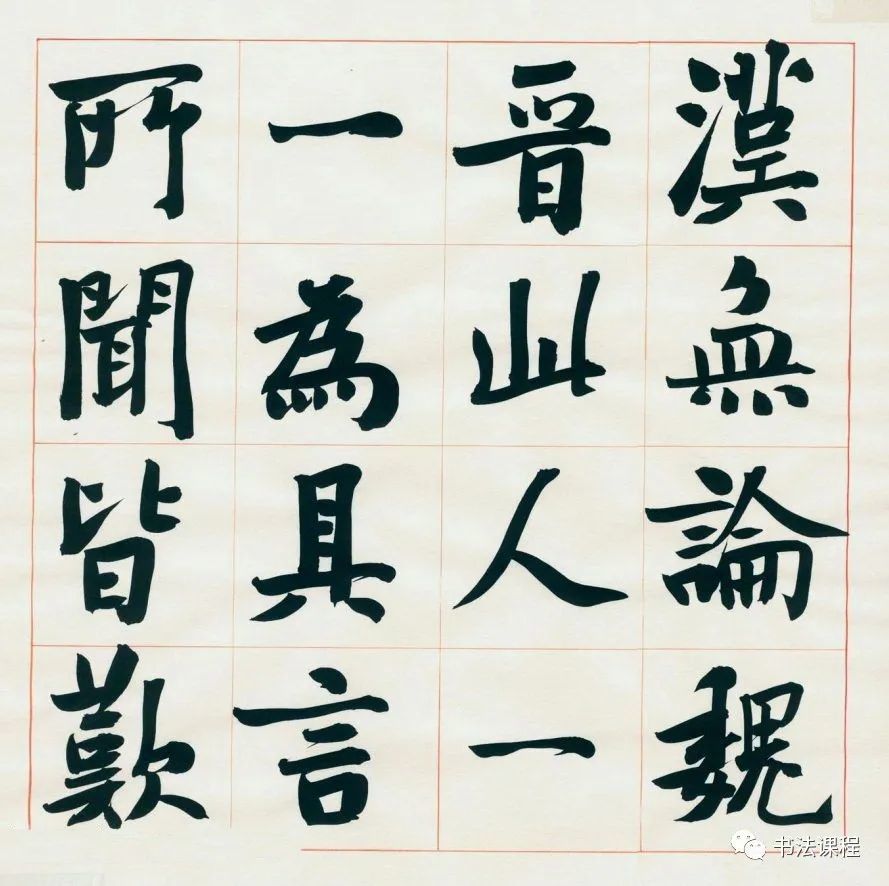 漢無論魏
晉此人一
一為具言
所聞皆歎
书法课程